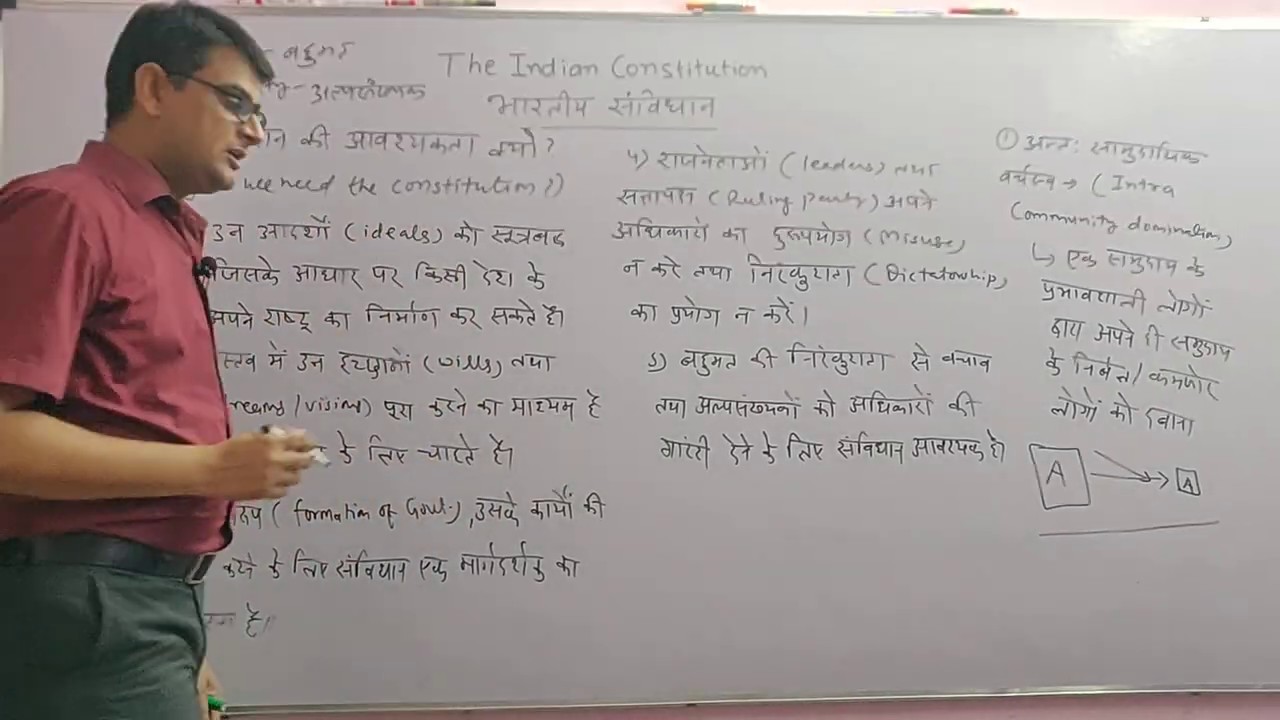 The Indian Constitution
भारतीय संविधान
बहुमत
अल्पसंख्यक
की आवश्यकता क्यों?
need the constitution?)
उन आदर्शों (ideals) को सूत्रबद्ध
जिसके आधार पर किसी देश के
अपने राष्ट्र का निर्माण कर सकते है।
में उन इच्छाओं (wills) तथा
पूरा करने का माध्यम है
के लिए चाहते है।
(formation of Govt.), उसके कार्यों की
करने के लिए संविधान एक मार्गदर्शक का
है।
4) राजनेताओं (leaders) तथा
सत्तापक्ष (Ruling Party) अपने
अधिकारों का दुरूपयोग (Misuse)
न करे तथा निरंकुशता (Dictatorship)
का प्रयोग न करें।
5) बहुमत की निरंकुशता से बचाव
तथा अल्पसंख्यकों को अधिकारों की
गारंटी देने के लिए संविधान आवश्यक है।
① अन्तः सामुदायिक
वर्चस्व → (Intra
Community domination)
↳ एक समुदाय के
प्रभावशाली लोगों
द्वारा अपने ही समुदाय
के निर्बल/कमजोर
लोगों को दबाना
A → A